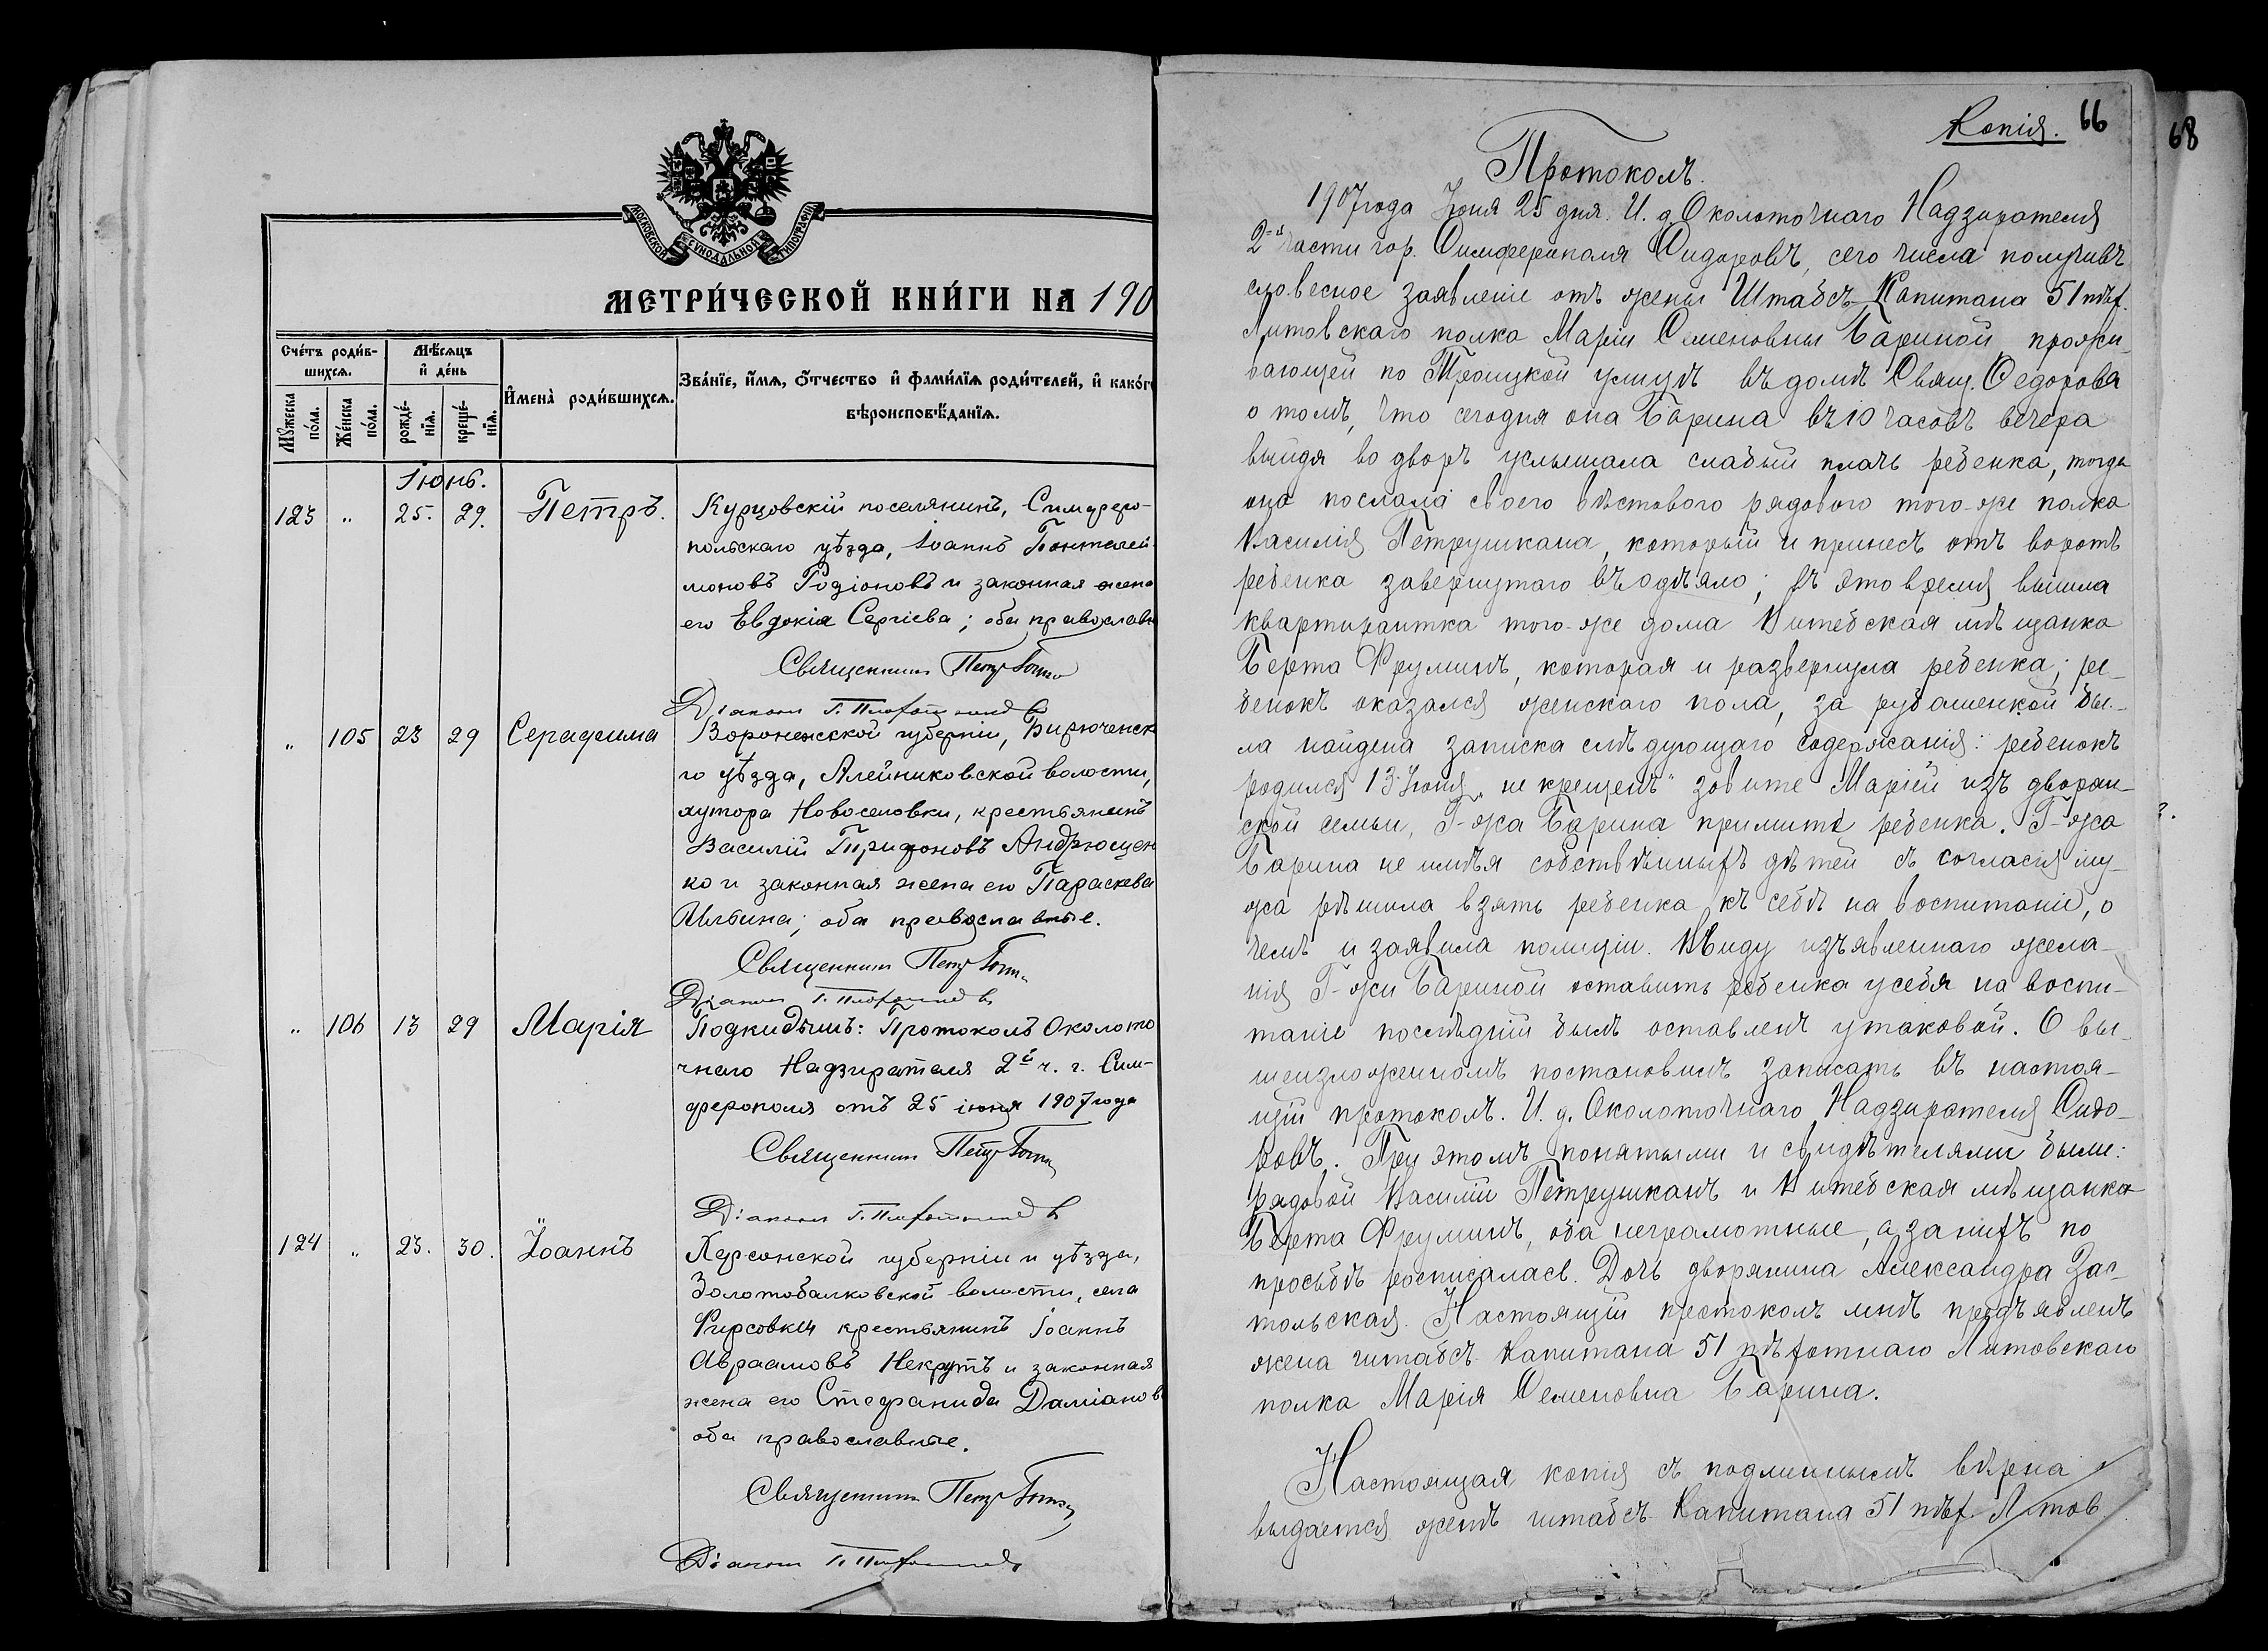 МОСКОВСКОЙ СѴНОДАЛЬНОЙ ТИПОГРАФІИ
МЕТРИ́ЧЕСКОЙ КНИ́ГИ НА 190
Сче́тъ роди́в-
шихсѧ.
Мѣ́сѧцъ
и҆ де́нь
Мꙋ́жеска по́ла.
Же́нска по́ла.
рожде́-
нїѧ.
креще́-
нїѧ.
И҆мена̀ роди́вшихсѧ.
Зва́нїе, и҆́мѧ, ѻ҆́тчество и҆ фами́лїѧ роди́телей, и҆ како́гѡ
вѣроисповѣ́данїѧ.
Іюнь.
123 " 25. 29. Петръ.
Курцовскій поселянинъ, Симферо-
польскаго уѣзда, Іоаннъ Пантелей-
моновъ Родіоновъ и законная жена
его Евдокія Сергіева; оба православн
Священникъ Петр
Діаконъ Г.
" 105 23 29 Серафима
Воронежской губерніи, Бирюченск
го уѣзда, Алейниковской волости,
хутора Новоселовки, крестьянинъ
Василій Трифоновъ Андрющен
ко и законная жена его Параскева
Ильина; оба православные.
Священникъ Петр
Діаконъ Г.
" 106 13 29 Марія
Подкидышъ: Протоколъ Околото
чнаго Надзирателя 2й ч. г. Сим-
ферополя отъ 25 іюня 1907 года
Священникъ Петр
Діаконъ Г.
124 " 23. 30. Іоаннъ
Херсонской губерніи и уѣзда,
Золотобалковской волости, села
Фирсовки крестьянинъ Іоаннъ
Авраамовъ Некрутъ и законная
жена его Стефанида Даміанов
оба православные.
Священникъ Петр
Діаконъ Г.
Копія. 66
68
Протоколъ.
1907 года Іюня 25 дня. И. д. Околоточнаго Надзирателя
2-й части гор. Симферополя Сидоровъ, сего числа получивъ
словесное заявленіе отъ жены Штабсъ-Капитана 51 пѣх.
Литовскаго полка Маріи Семеновны Бариной, прожи-
вающей по Троицкой улицѣ въ домѣ Свящ. Федорова
о томъ, что сегодня она Барина въ 10 часовъ вечера
выйдя во дворъ услышала слабый плачъ ребенка, тогда
она послала своего вѣстового рядового того-же полка
Василія Петрушкана, который и принесъ отъ воротъ
ребенка завернутаго въ одѣяло; въ это время вышла
квартирантка того-же дома Витебская мѣщанка
Берта Фруминъ, которая и развернула ребенка; ре-
бенокъ оказался женскаго пола, за рубашенкой бы-
ла найдена записка слѣдующаго содержанія: ребенокъ
родился 13 Іюня, не крещенъ" зовите Маріей изъ дворян-
ской семьи, Г-жа Барина примите ребенка. Г-жа
Барина не имѣя собственныхъ дѣтей съ согласія му-
жа рѣшила взять ребенка къ себѣ на воспитаніе, о
чемъ и заявила полиціи. Ввиду изъявленнаго жела-
нія Г-жи Бариной оставить ребенка у себя на воспи-
таніе послѣдній былъ оставленъ у таковой. О вы-
шеизложенномъ постановилъ записать въ настоя-
щій протоколъ. И. д. Околоточнаго Надзирателя Сидо-
ровъ. При этомъ понятыми и свидѣтелями были:
рядовой Василій Петрушканъ и Витебская мѣщанка
Берта Фруминъ, оба неграмотные, а за нихъ по
просьбѣ росписалась. Дочь дворянина Александра Зас-
тольская. Настоящій протоколъ мнѣ предъявленъ
жена штабсъ-Капитана 51 пѣхотнаго Литовскаго
полка Марія Семеновна Барина.
Настоящая копія съ подлиннымъ вѣрна и
выдается женѣ штабсъ-Капитана 51 пѣх. Литов.